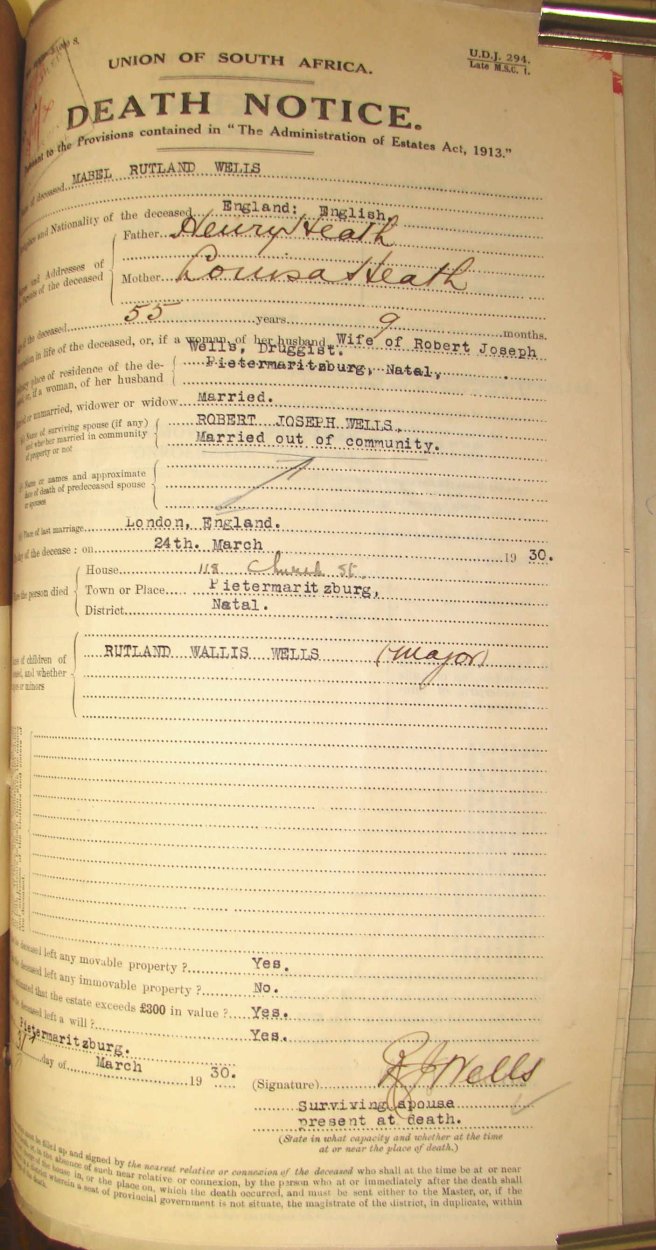 UNION OF SOUTH AFRICA.
U.D.J. 294.
Late M.S.C. 1.
DEATH NOTICE.
to the Provisions contained in "The Administration of Estates Act, 1913."
of deceased MABEL RUTLAND WELLS
and Nationality of the deceased England: English.
Father Henry Heath
and Addresses of
of the deceased
Mother Louisa Heath
of the deceased 55 years 9 months.
in life of the deceased, or, if a woman, of her husband Wife of Robert Joseph
Wells, Druggist.
place of residence of the de-
or, if a woman, of her husband
Pietermaritzburg, Natal,
or unmarried, widower or widow Married.
Name of surviving spouse (if any)
and whether married in community
of property or not
ROBERT JOSEPH WELLS.
Married out of community.
Name or names and approximate
date of death of predeceased spouse
or spouses
Place of last marriage London, England.
of the decease : on 24th. March 1930.
the person died
House 118 Church St.
Town or Place Pietermaritzburg,
District Natal.
of children of
and whether
or minors
RUTLAND WALLIS WELLS (major)
deceased left any movable property ? Yes.
deceased left any immovable property ? No.
that the estate exceeds £300 in value ? Yes.
deceased left a will ? Yes.
Pietermaritzburg.
31st day of March 1930.
(Signature) R J Wells
Surviving spouse
present at death.
(State in what capacity and whether at the time
at or near the place of death.)
be filled up and signed by the nearest relative or connexion of the deceased who shall at the time be at or near
in the absence of such near relative or connexion, by the person who at or immediately after the death shall
of the house in, or the place on, which the death occurred, and must be sent either to the Master, or, if the
district wherein a seat of provincial government is not situate, the magistrate of the district, in duplicate, within
death.